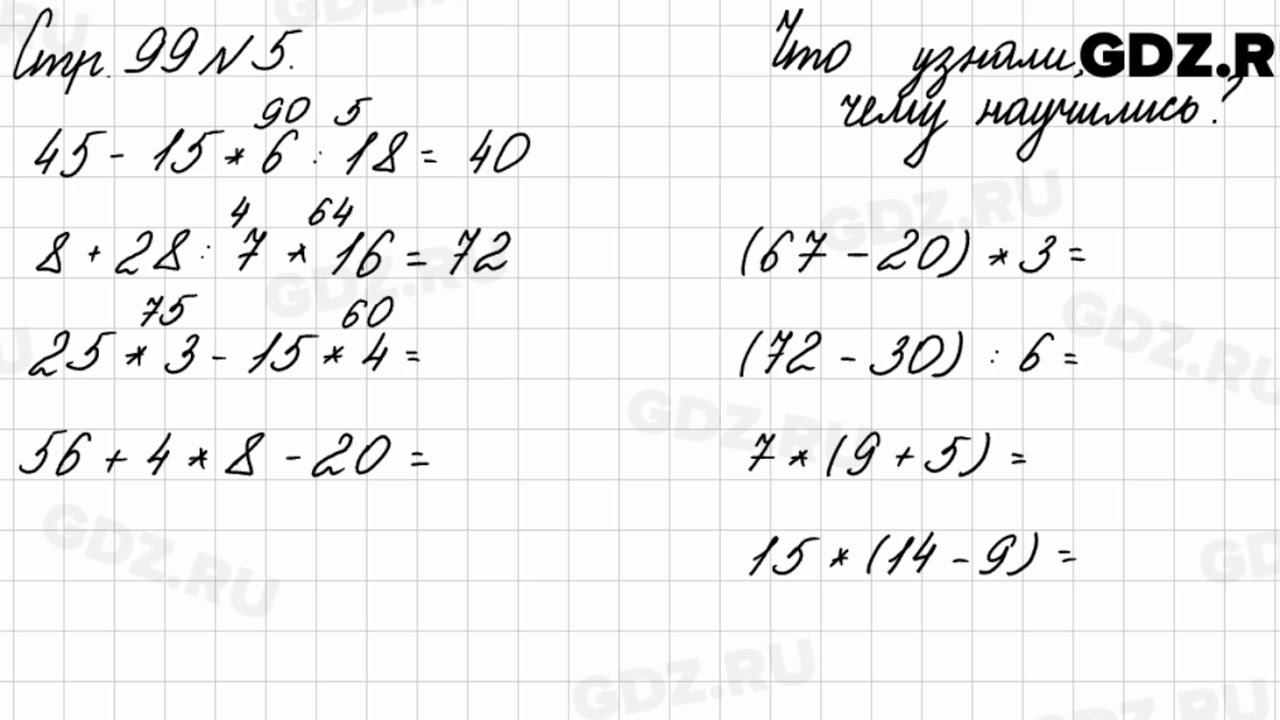 Стр. 99 № 5.
90 5
45 - 15 * 6 : 18 = 40
4 64
8 + 28 : 7 * 16 = 72
75 60
25 * 3 - 15 * 4 =
56 + 4 * 8 - 20 =
Что узнали,
чему научились?
(67 - 20) * 3 =
(72 - 30) : 6 =
7 * (9 + 5) =
15 * (14 - 9) =
GDZ.R
GDZ.RU
GDZ.RU
GDZ.RU
GDZ.RU
GDZ.RU
GDZ.RU